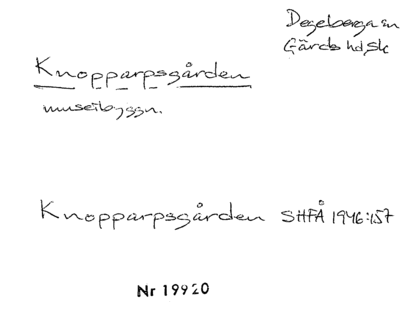 Degeberga sn
Gärds hd Sk
Knopparpsgården
museibyggn.
Knopparpsgården SHFÅ 1946:157
Nr 19920